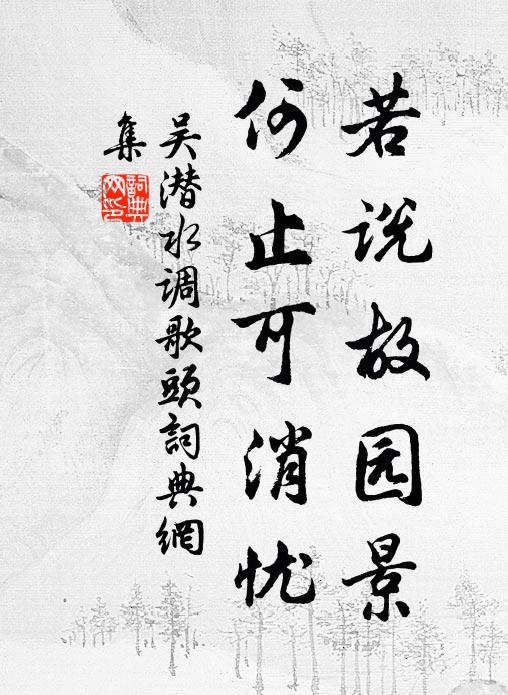 若说故园景
何止可消忧
吴潜水调歌头詞典網
集
詞典网印